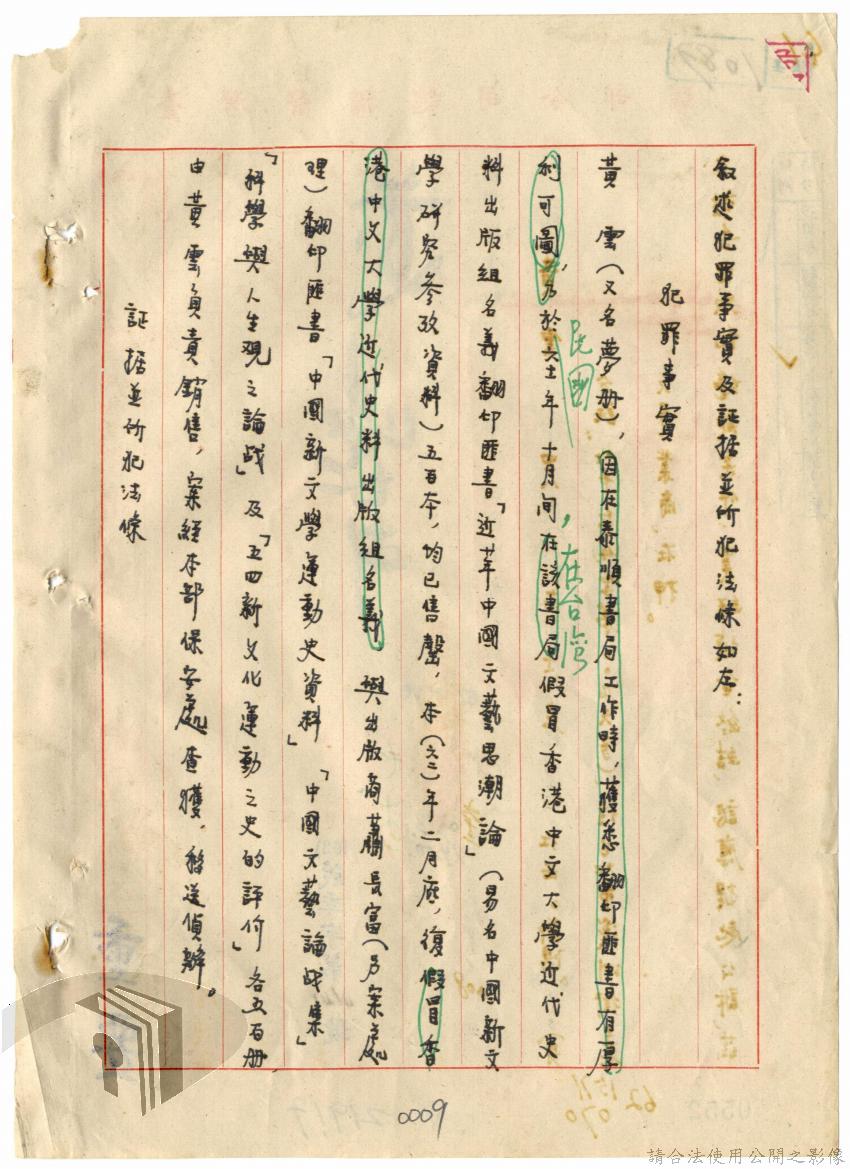 敘述犯罪事實及証据並所犯法條如左：
犯罪事實
黃雲（又名夢册），因在泰順書局工作時，獲悉翻印匪書有厚
利可圖，乃於六十一年十月间在該書局假冒香港中文大學近代史
民國
，在台灣
料出版組名義翻印匪書「近廿年中國文藝思潮論」（易名中國新文
學研究參攷資料）五百本，均已售罄，本（六二）年二月底，復假冒香
港中文大學近代史料出版組名義，與出版商蕭長富（另案處
理）翻印匪書「中國新文學運動史資料」「中國文藝論战集」
「科學與人生观之論战」及「五四新文化運動之史的評價」各五百册，
由黃雲負責銷售，案經本部保安處查獲，移送偵辦。
証据並所犯法條
0009
請合法使用公開之影像